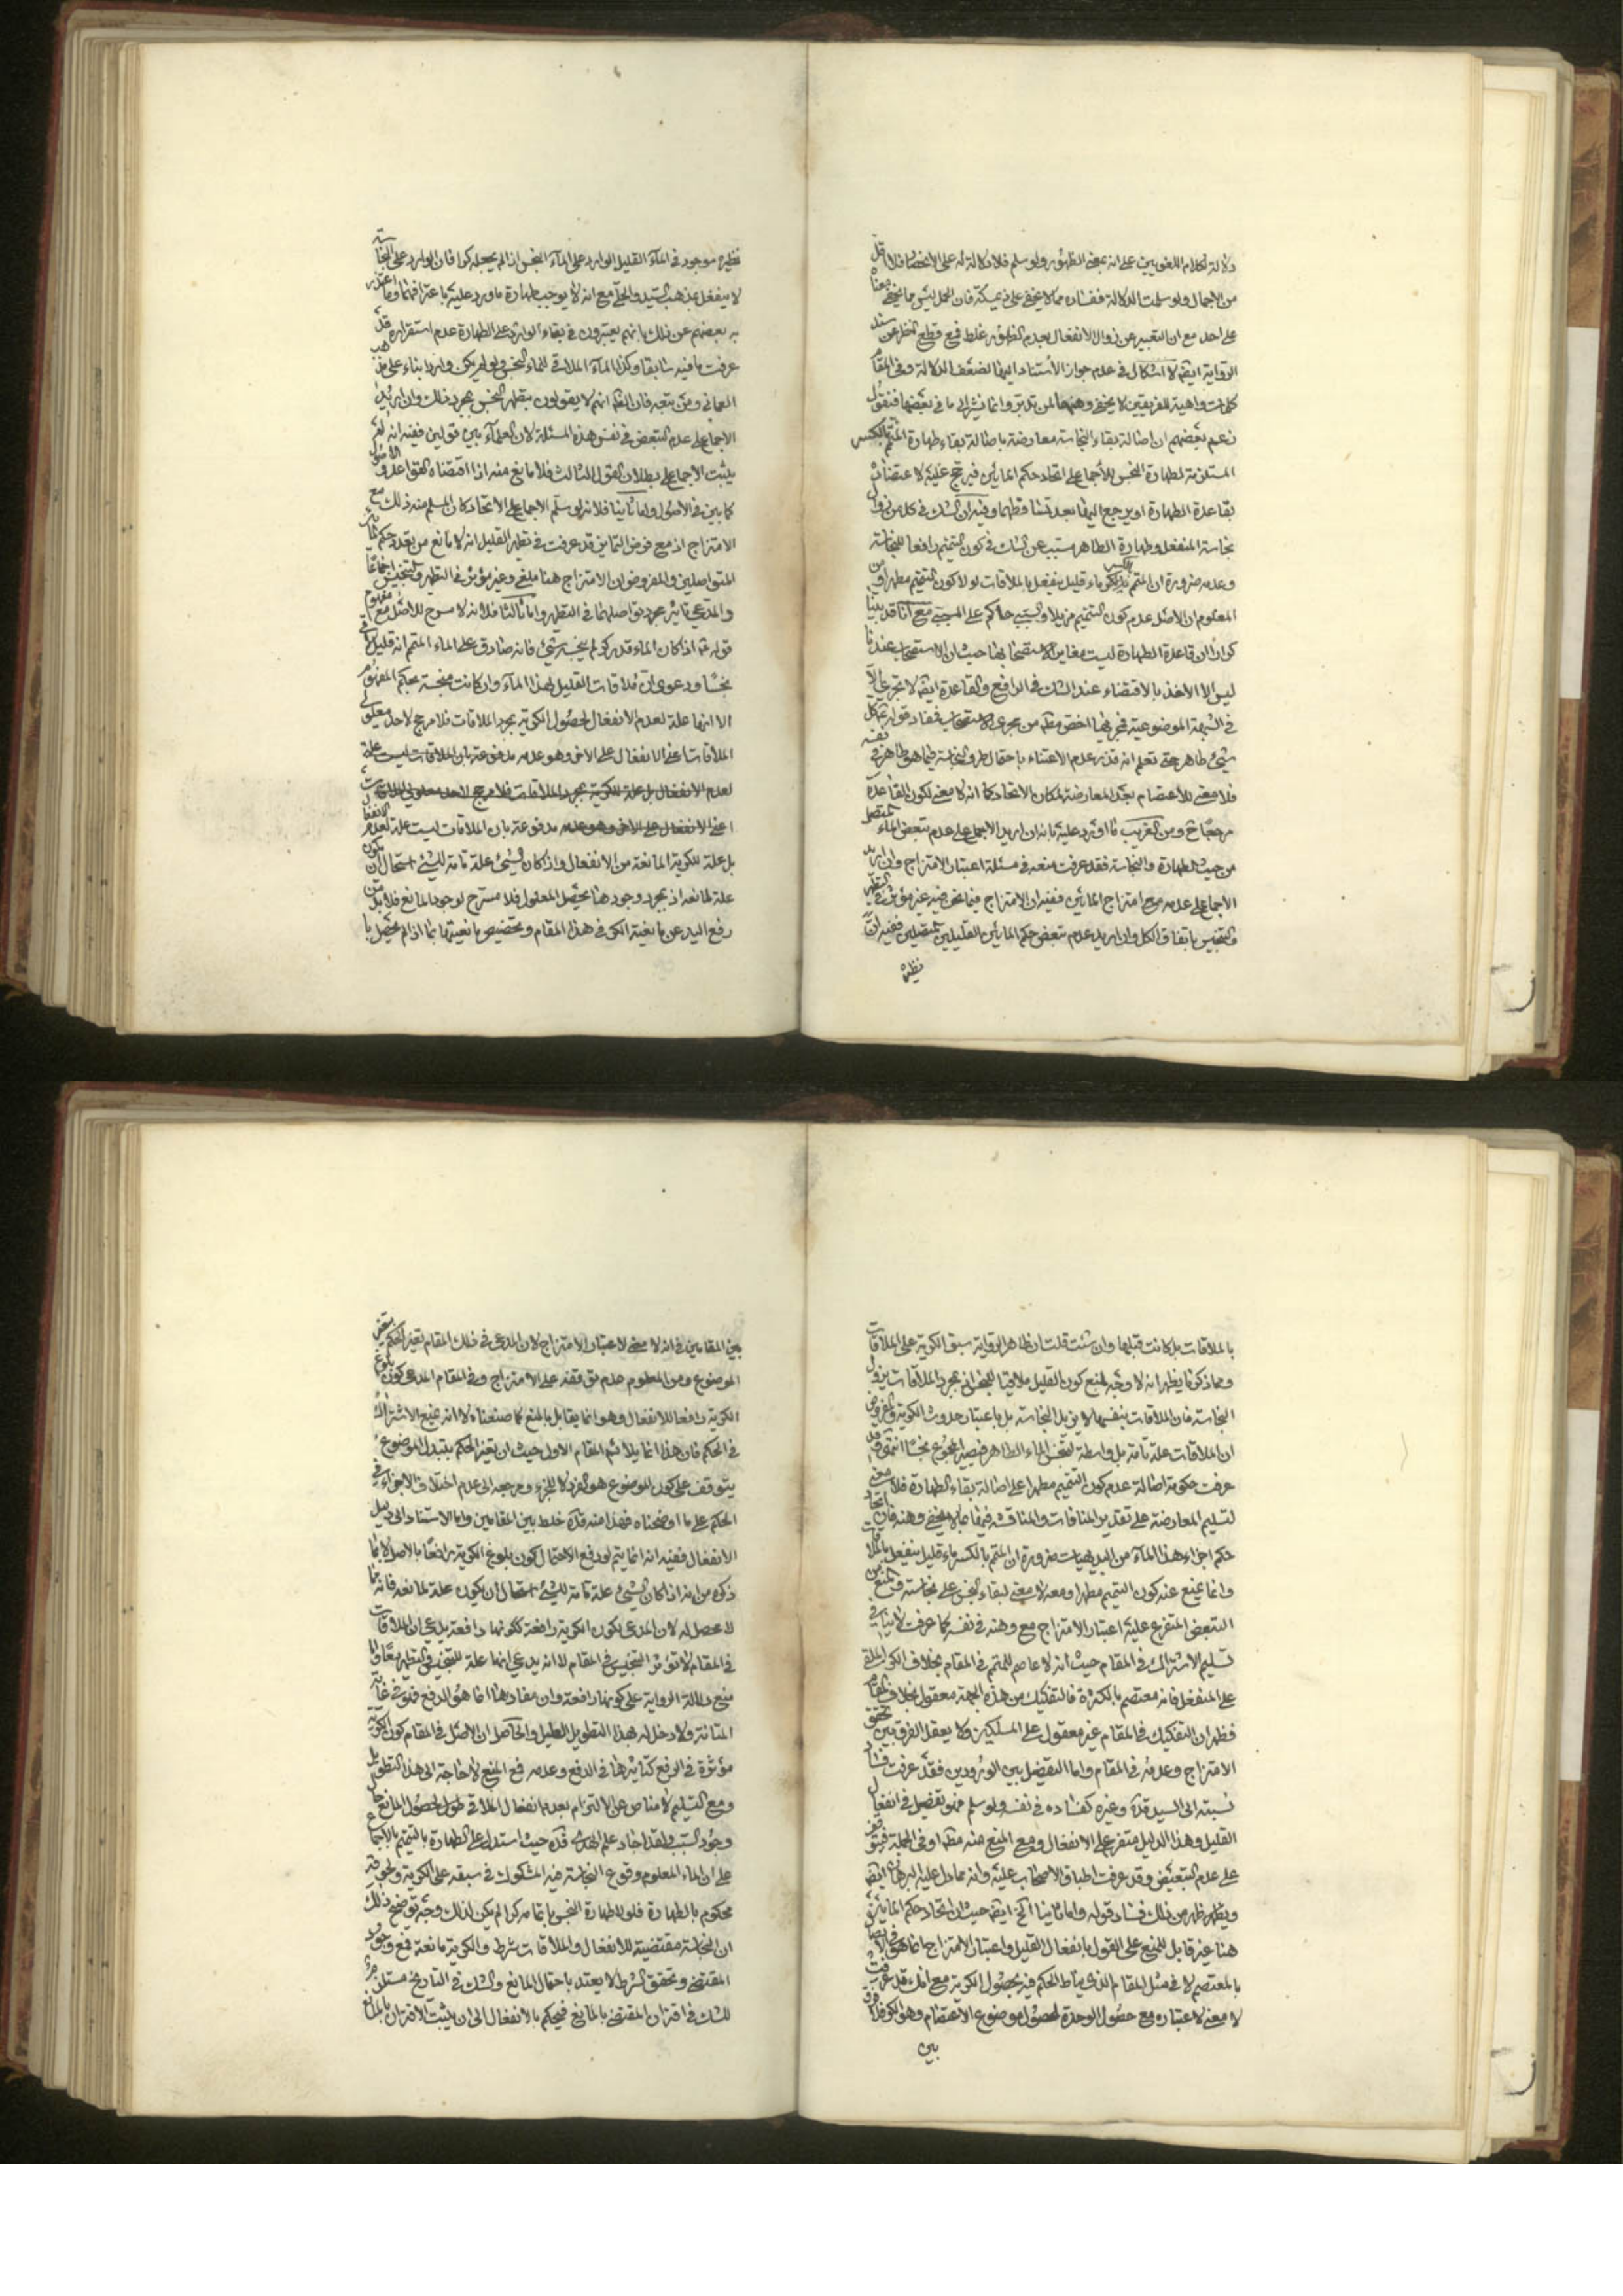 دلالة لكلام اللغويين على انه بمعنى الظهور ولو سلم فلا دلالة له على الاعتصام فلا اقل
من الاجمال ولو سلمت الدلالة ففساده مما لا يخفى على ذي مسكة فان الحمل ليس مما يخفى معناه
على احد مع ان التعبير عن زوال الانفعال بعدم الظهور غلط فمع قطع النظر عن سند
الرواية ايضا لا اشكال في عدم جواز الاستناد اليها لضعف الدلالة وفي المقام
كلمات واهية للفريقين لا يخفى وهنها لمن تدبر وانما نشير الى ما في بعضها فنقول
زعم بعضهم ان اصالة بقاء النجاسة معارضة باصالة بقاء طهارة المتمم بالكسر
المستلزمة لطهارة النجس للاجماع على اتحاد حكم المائين فيرجح عليه لاعتضاده
بقاعدة الطهارة او يرجع اليها بعد تساقطهما وفيه ان الشك في كل من زوال
نجاسة المنفعل وطهارة الطاهر مسبب عن الشك في كون التتميم رافعا للنجاسة
وعدمه ضرورة ان المتمم بالكسر ماء قليل ينفعل بالملاقات لولا كون التتميم مطهرا ومن
المعلوم ان الاصل عدم كون التتميم مزيلا والسبب حاكم على المسبب مع انا قد بينا
كرارا ان قاعدة الطهارة ليست مغايرة لاستصحابها حيث ان الاستصحاب عندنا
ليس الا الاخذ بالاقتضاء عند الشك في الرافع والقاعدة ايضا لا تجري الا
في الشبهة الموضوعية فمجريها اخص مطلقا من مجرى الاستصحاب فمفاد قوله ع كل
شيء طاهر حتى تعلم انه قذر عدم الاعتناء باحتمال طرو النجاسة فيما هو طاهر في نفسه
فلا معنى للاعتضاد بعد المعارضة لمكان الاتحاد كما انه لا معنى لكون القاعدة
مرجعا ح ومن الغريب ما اورد عليه بانه ان اريد الاجماع على عدم تبعض الماء المتصل
من حيث الطهارة والنجاسة فقد عرفت منعه في مسئلة اعتبار الامتزاج وان اريد
الاجماع على عدمه مع امتزاج المائين ففيه ان الامتزاج فيما نحن فيه غير مؤثر في التطهير
والتنجيس باتفاق الكل وان اريد عدم تبعض حكم المائين القليلين المتصلين ففيه ان
نظيره
نظيره موجود في الماء القليل الوارد على الماء النجس اذا لم يجعله كرا فان الوارد على النجاسة
لا ينفعل بمذهب السيد والحلي مع انه لا يوجب طهارة ما ورد عليه باعترافهما وما اعتذر
به بعضهم عن ذلك بانهم يعتبرون في بقاء الوارد على الطهارة عدم استقراره قد
عرفت ما فيه سابقا وكذا الماء الملاقي للماء النجس ولو لم يكن واردا بناء على مذهب
العماني ومن تبعه فان الظ انهم لا يقولون بتطهر النجس بمجرد ذلك وان اريد
الاجماع على عدم التبعض في نفس هذه المسئلة لان العلماء بين قولين ففيه انه لم
يثبت الاجماع على بطلان القول الثالث فلا مانع منه اذا اقتضاه القواعد والاصول
كما بين في الاصول واما ثانيا فلانه لو سلم الاجماع على الاتحاد كان المسلم منه ذلك مع
الامتزاج اذ مع فرض التمايز قد عرفت في تطهر القليل انه لا مانع من تعدد حكم المائين
المتواصلين والمفروض ان الامتزاج هنا ملغى وغير مؤثر في التطهر والتنجيس اجماعا
والمدعى تاثير مجرد تواصلهما في التطهر واما ثالثا فلانه لا مسرح للاصل مع مفهوم
قوله ع اذا كان الماء قدر كر لم ينجسه شيء فانه صادق على الماء المتمم انه قليل لاقى
نجسا ودعوى ان ملاقات القليل لهذا الماء وان كانت منجسة بحكم المفهوم
الا انها علة لعدم الانفعال لحصول الكرية بمجرد الملاقات فلا مرجح لاحد معلولي
الملاقات اعني الانفعال على الاخر وهو عدمه مدفوعة بان الملاقات ليست علة
لعدم الانفعال بل علة للكرية بمجرد الملاقات فلا مرجح لاحد معلولي الملاقات
اعني الانفعال على الاخر وهو عدمه مدفوعة بان الملاقات ليست علة لعدم الانفعال
بل علة للكرية المانعة من الانفعال واذا كان شيء علة تامة لشيء استحال ان يكون
علة لمانعه اذ بمجرد وجودها يحصل المعلول فلا مسرح لوجود المانع فلا بد من
رفع اليد عن مانعية الكر في هذا المقام وتخصيص مانعيتها بما اذا لم يحصل با
بالملاقات بل كانت قبلها وان شئت قلت ان ظاهر الرواية سبق الكرية على الملاقات
ومما ذكرنا يظهر انه لا وجه لمنع كون القليل ملاقيا للنجس اذ بمجرد الملاقات يزول
النجاسة فان الملاقات بنفسها لا يزيل النجاسة بل باعتبار حدوث الكرية والمفروض
ان الملاقات علة تامة بل واسطة لتنجس الماء الطاهر فيصير المجموع نجسا انتهى وقد
عرفت حكومة اصالة عدم كون التتميم مطهرا على اصالة بقاء الطهارة فلا معنى
لتسليم المعارضة على تقدير المنافات والمناقشة فيها بما لا يخفى وهنه فان اتحاد
حكم اجزاء هذا الماء من البديهيات ضرورة ان المتمم بالكسر ماء قليل ينفعل بالملاقات
وانما يمنع عنه كون التتميم مطهرا ومعه لا معنى لبقاء النجس على نجاسته والمنع من
التبعض المتفرع عليه اعتبار الامتزاج مع وهنه في نفسه كما عرفت لا ينافي
تسليم الاشتراك في المقام حيث انه لا عاصم للمتمم في المقام بخلاف الكر الملقى
على المنفعل فانه معتصم بالكثرة فالتفكيك من هذه الجهة معقول بخلاف المقام
فظهر ان التفكيك في المقام غير معقول على المسلكين ولا يعقل الفرق بين تحقق
الامتزاج وعدمه في المقام واما التفصيل بين الورودين فقد عرفت فساد
نسبته الى السيد قده وغيره كفساده في نفسه ولو سلم فهو تفصيل في انفعال
القليل وهذا الدليل متفرع على الانفعال ومع المنع منه مطلقا وفي الجملة فيتوقف
على عدم التبعيض وقد عرفت اطباق الاصحاب عليه وانه مما دل عليه البرهان ايضا
ويظهر من ذلك فساد قوله واما ثانيا الخ ايضا حيث ان اتحاد حكم المائين
هنا غير قابل للمنع على القول بانفعال القليل واعتبار الامتزاج انما هو في الاتصال
بالمعتصم لا في مثل المقام الذي مناط الحكم فيه بحصول الكرية مع انك قد عرفت
لا معنى لاعتباره مع حصول الوحدة لحصول موضوع الاعتصام وهو الكر فلا فرق
بين
بين المقامين في انه لا معنى لاعتبار الامتزاج لان المدعى في ذلك المقام تغير الحكم بتغير
الموضوع ومن المعلوم عدم توقفه على الامتزاج وفي المقام المدعى كون بلوغ
الكرية رافعا للانفعال وهو انما يقابل بالمنع كما صنعناه لا انه يمنع الاشتراك
في الحكم فان هذا انما يلائم المقام الاول حيث ان تغير الحكم بتبدل الموضوع
يتوقف على كون الموضوع هو الفرد لا للجزء ومرجعه الى عدم اختلاف الاجزاء في
الحكم على ما اوضحناه فهذا منه قده خلط بين المقامين واما الاستناد الى دليل
الانفعال ففيه انه انما يتم لو دفع الاحتمال كون بلوغ الكرية رافعا بالاصل لا بما
ذكره من انه اذا كان الشيء علة تامة لشيء استحال ان يكون علة لمانعه فانه مما
لا محصل له لان المدعى بكون الكرية رافعة ككونها دافعة يدعي ان الملاقات
في المقام لا تؤثر التنجيس في المقام لا انه يدعي انها علة للتنجيس والتطهير معا واما
منع دلالة الرواية على كونها رافعة وان مفادها انما هو الدفع فهو في غاية
المتانة ولا دخل له بهذا التطويل الطويل والحاصل ان الاصل في المقام كون الكرية
مؤثرة في الرفع كتاثيرها في الدفع وعدمه فمع المنع لا حاجة الى هذا التطويل
ومع التسليم لا مناص عن الالتزام بعدم انفعال الملاقي لحصول المانع حال
وجود السبب ولقد اجاد علم الهدى قده حيث استدل على الطهارة بالتتميم بالاجماع
على ان الماء المعلوم وقوع النجاسة فيه المشكوك في سبقه على الكرية ولحوقه
محكوم بالطهارة فلولا طهارة النجس باتمامه كرا لم يكن لذلك وجه توضيح ذلك
ان النجاسة مقتضية للانفعال والملاقات شرط والكرية مانعة فمع وجود
المقتضي وتحقق الشرط لا يعتد باحتمال المانع والشك في التاريخ مستلزم
للشك في اقتران المقتضي بالمانع فيحكم بالانفعال الى ان يثبت الاقتران بالمانع